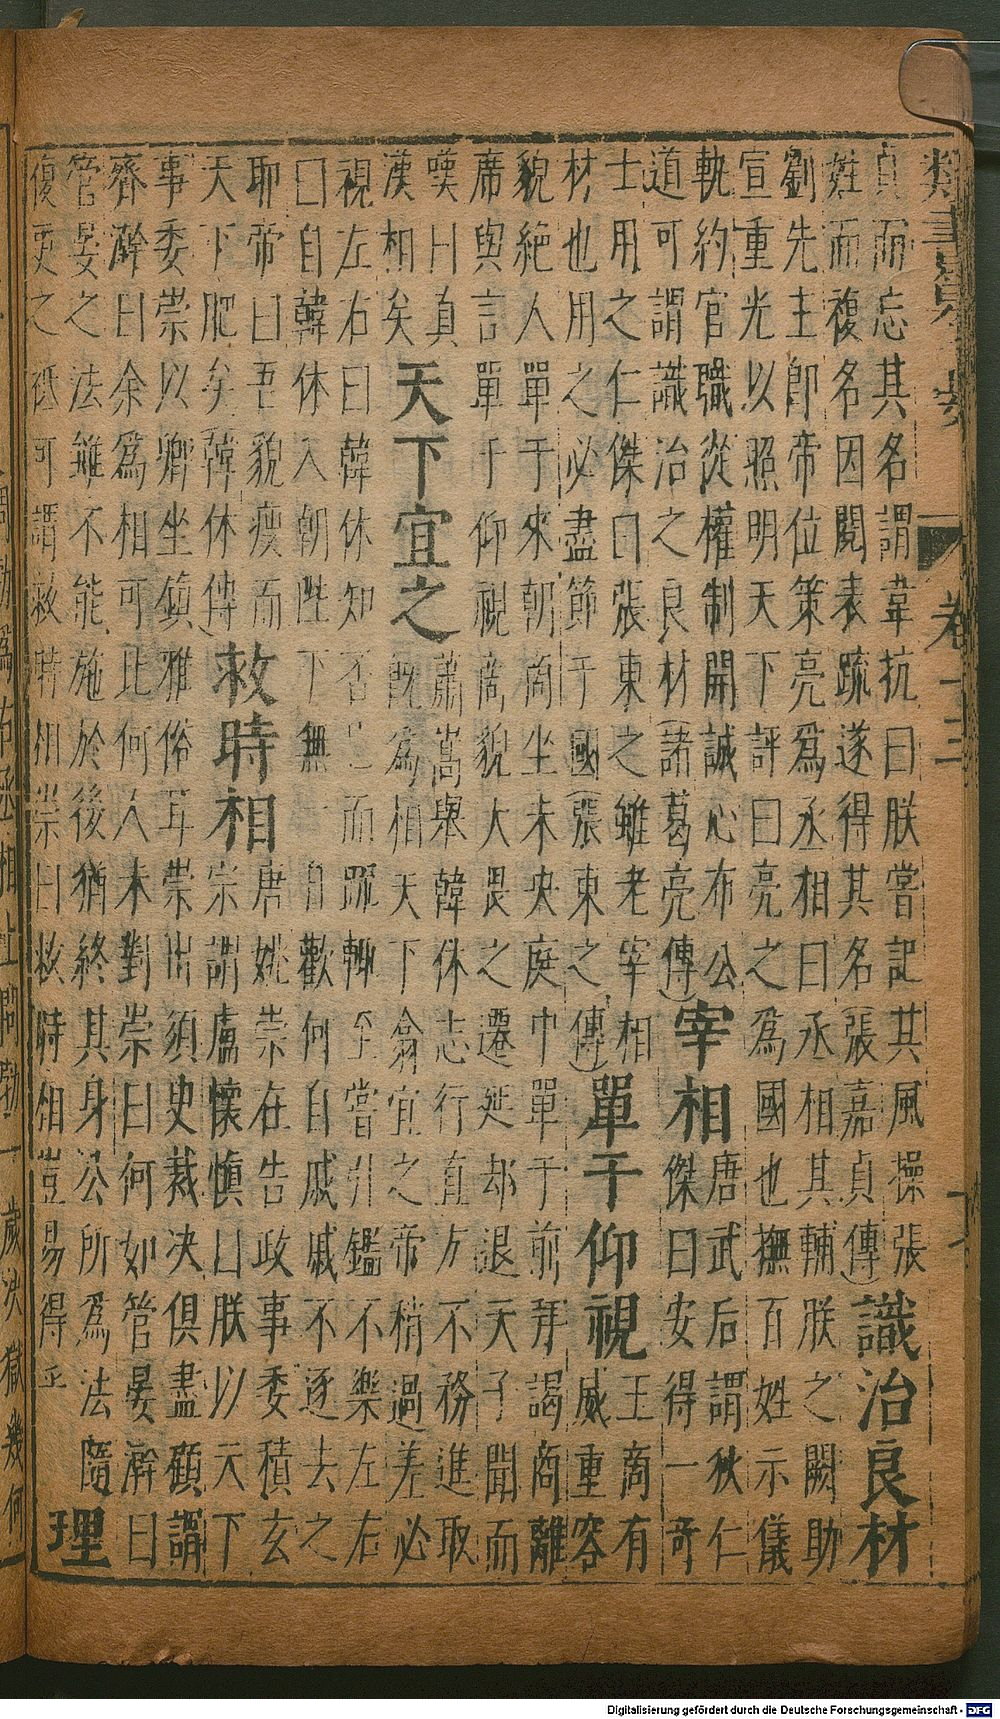 類書纂要 卷十三
貞而忘其名謂韋抗曰朕嘗記其風操張
姓而複名因閱表疏遂得其名(張嘉貞傳)
識治良材
劉先主即帝位策亮爲丞相曰丞相其輔朕之闕助
宣重光以照明天下評曰亮之爲國也撫百姓示儀
軌約官職從權制開誠心布公
道可謂識治之良材(諸葛亮傳)
宰相
唐武后謂狄仁
傑曰安得一奇
士用之仁傑曰張東之雖老宰相
材也用之必盡節于國(張東之傳)
單于仰視
王商有
威重容
貌絶人單于來朝商坐未央庭中單于前拜謁商離
席與言單于仰視商貌大畏之遷延却退天子聞而
嘆曰真
漢相矣
天下宜之
蕭嵩舉韓休志行直方不務進取
既爲相天下翕宜之帝稍過差必
視左右曰韓休知否已而疏輒至嘗引鑑不樂左右
曰自韓休入朝陛下無一日歡何自戚戚不逐去之
耶帝曰吾貌瘦而
天下肥矣韓休傳
救時相
唐姚崇在告政事委積玄
宗謂盧懷慎曰朕以天下
事委崇以卿坐鎮雅俗耳崇出須史裁決俱盡顧謂
齊澣曰余爲相可比何人未對崇曰何如管晏澣曰
管晏之法雖不能施於後猶終其身公所爲法隨
復更之秪可謂救時相崇曰救時相豈易得乎
理
周勃爲右丞相上問勃一歲決獄幾何
Digitalisierung gefördert durch die Deutsche Forschungsgemeinschaft - DFG